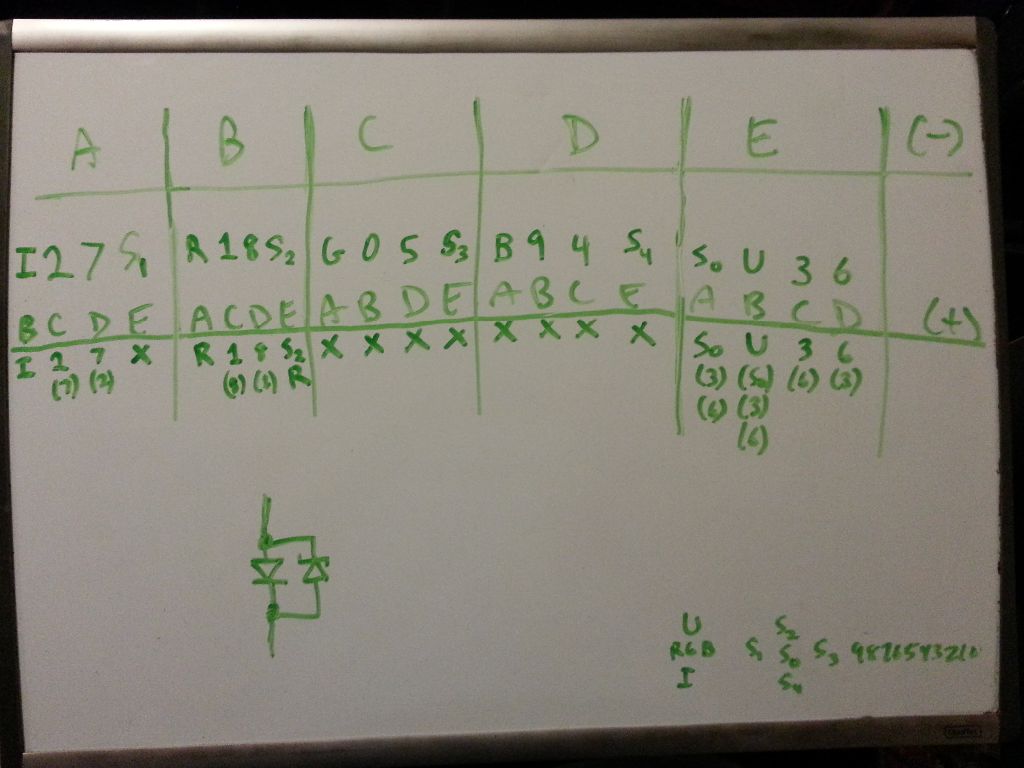 A B C D E (-)
I 2 7 S1 R 1 8 S2 G 0 5 S3 B 9 4 S4 S0 U 3 6
B C D E A C D E A B D E A B C E A B C D (+)
I 2 7 X R 1 8 S2 X X X X X X X X S0 U 3 6
(7) (2) (8) (1) R (3) (S0) (6) (3)
(6) (3)
(6)
U S2
RGB S1 S0 S3 9876543210
I S4